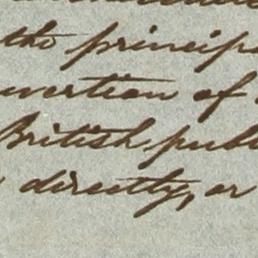 the princip
vertion of
British publ
directly, or